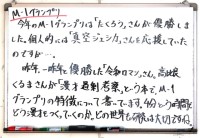 M-1グランプリ
今年のM-1グランプリは「たくろう」さんが優勝しま
した。個人的には「真空ジェシカ」さんを応援していた
のですが…。
昨年、一昨年と優勝した「令和ロマン」さん。高比良
くるまさんが「漫才過剰考察」という本で、M-1
グランプリの特徴について書いてます。4分という時間を
どう漫才をつくっていくのか、どの世界も研究は大切ですね。